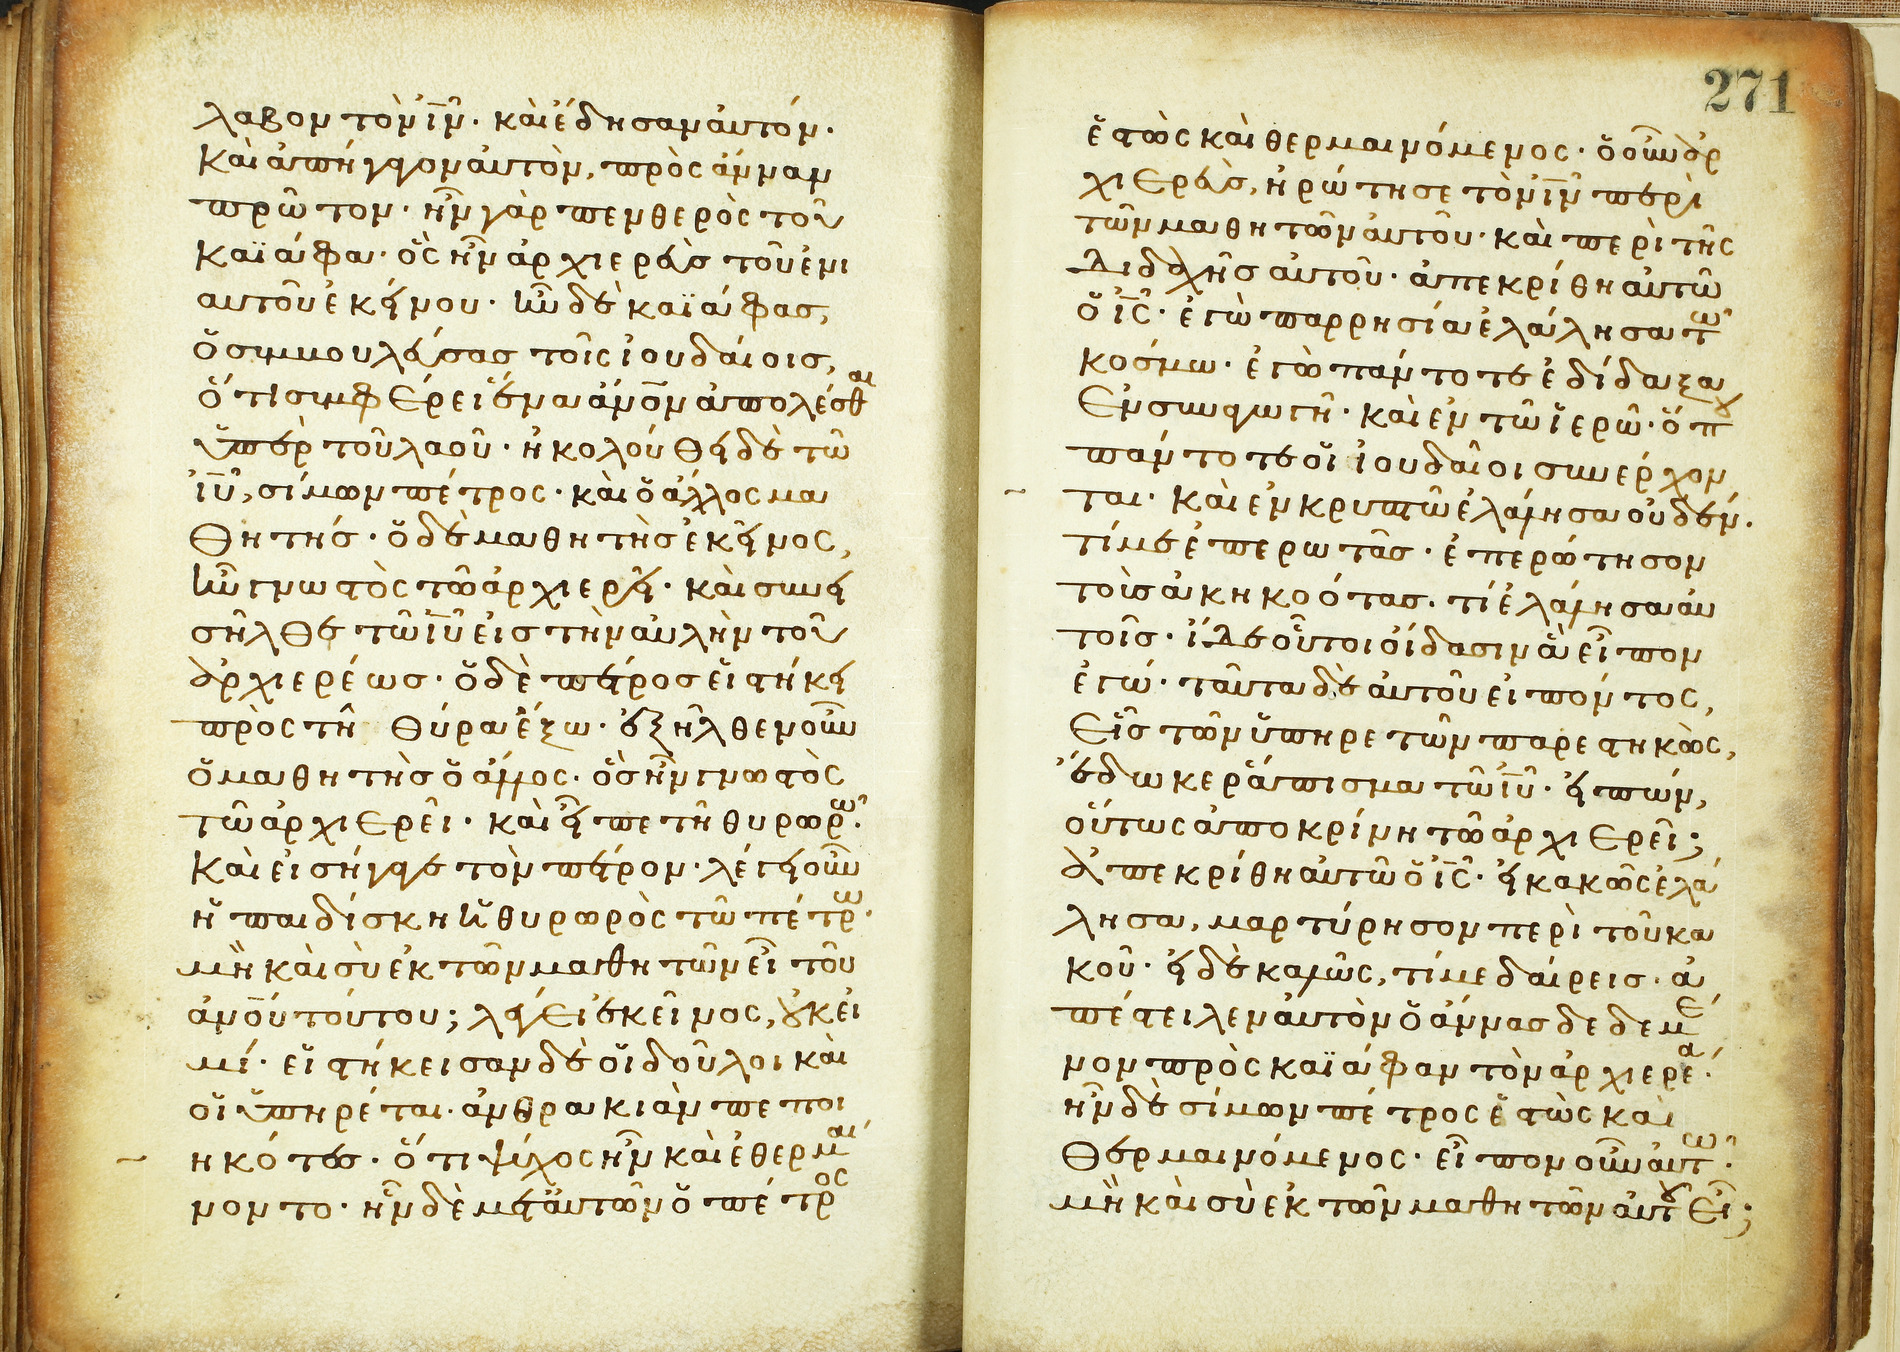 λαβον τὸν ἰν̅. καὶ ἔδησαν αὐτόν.
καὶ ἀπήγαγον αὐτὸν, πρὸς ἄνναν
πρῶτον. ἦν γὰρ πενθερὸς τοῦ
καϊάφα. ὃς ἦν ἀρχιερεὺς τοῦ ἐνι
αυτοῦ ἐκείνου. ἦν δὲ καϊάφας,
ὁ συμβουλεύσας τοῖς ἰουδαίοις,
ὅτι συμφέρει ἕνα ἄνο̅ν ἀπολέσθαι
ὑπὲρ τοῦ λαοῦ. ἠκολούθει δὲ τῶ
ἰυ̅, σίμων πέτρος. καὶ ὁ ἄλλος μα
θητής. ὁ δὲ μαθητὴς ἐκεῖνος,
ἦν γνωστὸς τῶ ἀρχιερεῖ. καὶ συνει
σῆλθε τῶ ἰυ̅ εἰς τὴν αὐλὴν τοῦ
ἀρχιερέως. ὁ δὲ πέτρος εἱστήκει
πρὸς τῆ θύρα ἔξω. ἐξῆλθεν οὖν
ὁ μαθητὴς ὁ ἄλλος. ὃς ἦν γνωστὸς
τῶ ἀρχιερεῖ. καὶ εἶπε τῆ θυρωρῶ.
καὶ εἰσήγαγε τὸν πέτρον. λέγει οὖν
ἡ παιδίσκη ἡ θυρωρὸς τῶ πέτρω.
μὴ καὶ σὺ ἐκ τῶν μαθητῶν εἶ τοῦ
ἀνο̅υ τούτου; λέγει ἐκεῖνος, οὐκ εἰ
μί. εἱστήκεισαν δὲ οἱ δοῦλοι καὶ
οἱ ὑπηρέται. ἀνθρακιὰν πεποι
ηκότες. ὅτι ψύχος ἦν καὶ ἐθερμαί
νοντο. ἦν δὲ μετ' αὐτῶν ὁ πέτρος
271
ἑστὼς καὶ θερμαινόμενος. ὁ οὖν ἀρ
χιερεὺς, ἠρώτησε τὸν ἰν̅ περὶ
τῶν μαθητῶν αὐτοῦ. καὶ περὶ τῆς
διδαχῆς αὐτοῦ. ἀπεκρίθη αὐτῶ
ὁ ἰς̅. ἐγὼ παρρησία ἐλάλησα τῶ
κόσμω. ἐγὼ πάντοτε ἐδίδαξα
ἐν συναγωγῆ. καὶ ἐν τῶ ἱερῶ. ὅπου
πάντοτε οἱ ἰουδαῖοι συνέρχον
ται. καὶ ἐν κρυπτῶ ἐλάλησα οὐδέν.
τί με ἐπερωτᾶς. ἐπερώτησον
τοὺς ἀκηκοότας. τί ἐλάλησα αὐ
τοῖς. ἴδε οὗτοι οἴδασιν ἃ εἶπον
ἐγώ. ταῦτα δὲ αὐτοῦ εἰπόντος,
εἷς τῶν ὑπηρετῶν παρεστηκὼς,
ἔδωκε ῥάπισμα τῶ ἰυ̅. εἰπών,
οὕτως ἀποκρίνη τῶ ἀρχιερεῖ;
ἀπεκρίθη αὐτῶ ὁ ἰς̅. εἰ κακῶς ἐλά
λησα, μαρτύρησον περὶ τοῦ κα
κοῦ. εἰ δὲ καλῶς, τί με δαίρεις. ἀ
πέστειλεν αὐτὸν ὁ ἄννας δεδεμέ
νον πρὸς καϊάφαν τὸν ἀρχιερέα.
ἦν δὲ σίμων πέτρος ἑστὼς καὶ
θερμαινόμενος. εἶπον οὖν αὐτῶ.
μὴ καὶ σὺ ἐκ τῶν μαθητῶν αὐτοῦ εἶ;